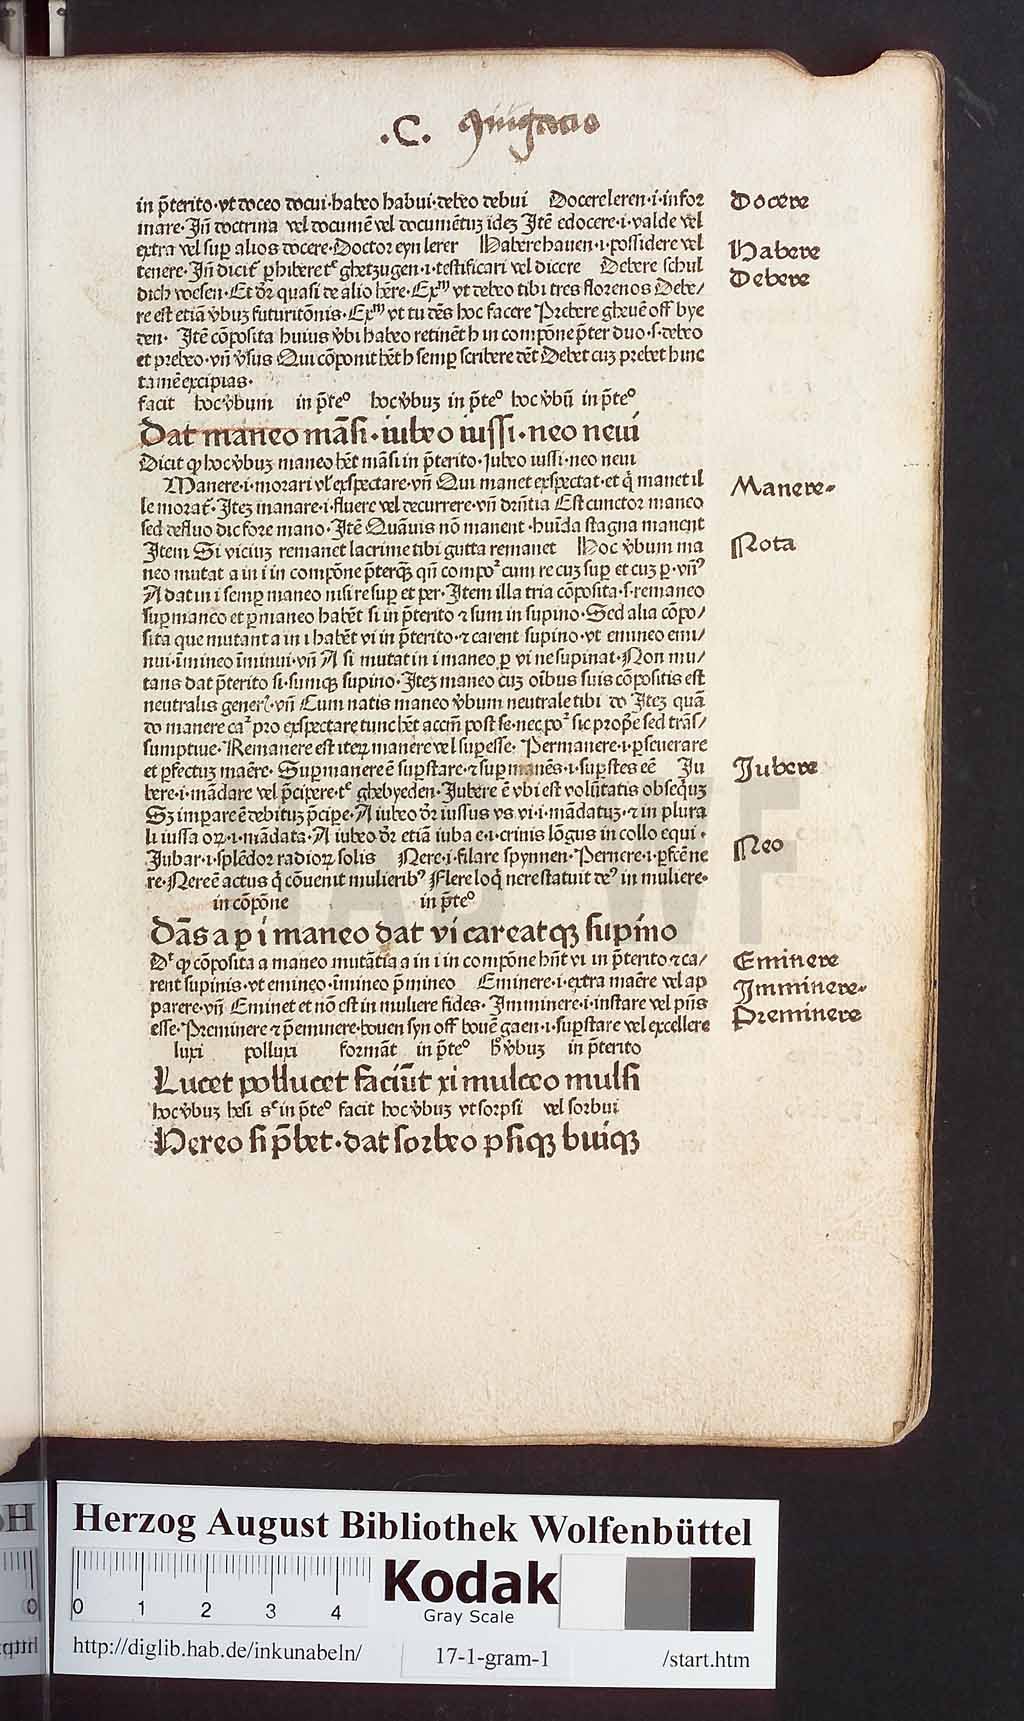 .C.
in p̄terito·vt doceo docui·habeo habui·debeo debui Docere leren·i·infor
mare·Jn̄ doctrina vel documē vel documētuꝫ ideꝫ Jtē edocere·i·valde vel
extra vel suꝑ alios docere·Doctor eyn lerer Habere hauen·i·possidere vel
tenere·Jn̄ dicit᷑ ꝑhibere tᶜ ghetzugen·i·testificari vel dicere Debere schul
dich wesen·Et dr̄ quasi de alio hr̄e·Exᵐ vt debeo tibi tres florenos Debe/
re est etiā v̄buꝫ futuritōnis·Exᵐ vt tu dēs hoc facere Prebere gheuē off bye
den· Jtē cōposita huius v̄bi habeo retinēt h in compōne p̄ter duo·s·debeo
et prebeo·vn̄ v̄sus Qui cōponit hēt h semꝑ scribere dēt Debet cuꝫ prebet hinc
tamē excipias·
facit hoc v̄bum in p̄teᵒ hoc v̄buꝫ in p̄teᵒ hoc v̄bū in p̄teᵒ
Dat maneo māsi·iubeo iussi·neo neui
Dicit ꝙ hoc v̄buꝫ maneo hēt māsi in p̄terito·Jubeo iussi·neo neui
Manere·i·morari vł exspectare·vn̄ Qui manet exspectat·et q̄ manet il
le morat᷑·Jteꝫ manare·i·fluere vel decurrere·vn̄ drn̄tia Est cunctor maneo
sed defluo dic fore mano·Jtē Quāuis nō manent·huīda stagna manent
Jtem Si viciuꝫ remanet lacrime tibi gutta remanet Hoc v̄bum ma
neo mutat a in i in compōne p̄terqꝫ qn̄ compoʳ cum re cuꝫ suꝑ et cuꝫ ꝑ·vn̄ꝰ
A dat in i semꝑ maneo nisi re suꝑ et per·Jtem illa tria cōposita·s·remaneo
suꝑmaneo et ꝑmaneo habēt si in p̄terito ⁊ sum in supino·Sed alia cōpo/
sita que mutant a in i habēt vi in p̄terito·⁊ carent supino·vt emineo emi/
nui·īmineo īminui·vn̄ A si mutat in i maneo ꝑ vi ne supinat·Non mu/
tans dat p̄terito si·sumqꝫ supino·Jteꝫ maneo cuꝫ oībus suis cōpositis est
neutralis gener᷑·vn̄ Cum natis maneo v̄bum neutrale tibi do Jteꝫ quā
do manere caʳ pro exspectare tunc hēt accm̄ post se·nec poʳ sic prop̄e sed trās/
sumptiue·Remanere est iteꝝ manere vel suꝑesse·Permanere·i·ꝑseuerare
et ꝑfectuꝫ maēre·Suꝑmanere ē suꝑstare·⁊ suꝑmanēs·i·suꝑstes eē Ju
bere·i·mādare vel p̄cipere·tᶜ ghebyeden·Jubere ē vbi est volūtatis obseq̄uꝫ
Sꝫ imꝑare ē debituꝫ p̄cipe·A iubeo dr̄ iussus vs vi·i·mādatuꝫ·⁊ in plura
li iussa oꝝ·i·mādata·A iubeo dr̄ etiā iuba e·i·crinis lōgus in collo equi·
Jubar·i·splēdor radioꝝ solis Nere·i·filare spynnen·Pernere·i·ꝑfcē ne
re·Nere ē actus q̄ cōuenit mulieribꝰ Flere loq̄ nere statuit deꝰ in muliere·
in cōpōne in p̄teᵒ
Dās a ꝑ i maneo dat vi careatqꝫ supino
Dᵗ ꝙ cōposita a maneo mutātia a in i in compōne hn̄t vi in p̄terito ⁊ ca/
rent supinis·vt emineo·īmineo p̄mineo Eminere·i·extra maēre vel ap
parere·vn̄ Eminet et nō est in muliere fides·Jmminere·i·instare vel pn̄s
esse·Preminere ⁊ p̄eminere·bouen syn off bouē gaen·i·suꝑstare vel excellere
luxi polluxi formāt in p̄teᵒ h̄ v̄buꝫ in p̄terito
Lucet pollucet faciūt xi mulceo mulsi
hoc v̄buꝫ hesi sᶜ in p̄teᵒ facit hoc v̄buꝫ vt sorpsi vel sorbui
Hereo si p̄bet·dat sorbeo psiqꝫ buiqꝫ
Docere
Habere
Debere
Manere·
Nota
Jubere
Neo
Eminere
Jmminere·
Preminere
Herzog August Bibliothek Wolfenbüttel
Kodak
Gray Scale
0 1 2 3 4
http://diglib.hab.de/inkunabeln/ 17-1-gram-1 /start.htm